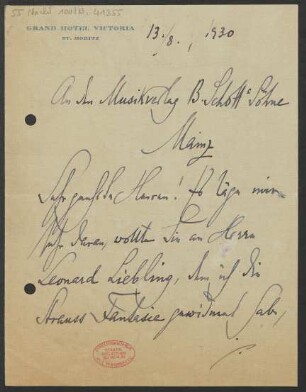 55 Nachl 100/B, 41255
GRAND HOTEL VICTORIA
ST. MORITZ
13./8. 1930
An den Musikverlag B. Schott's Söhne
Mainz
Sehr geehrte Herren! Es läge mir
sehr daran, wollten Sie an Herrn
Leonard Liebling, dem ich die
Strauss Fantasie gewidmet habe,